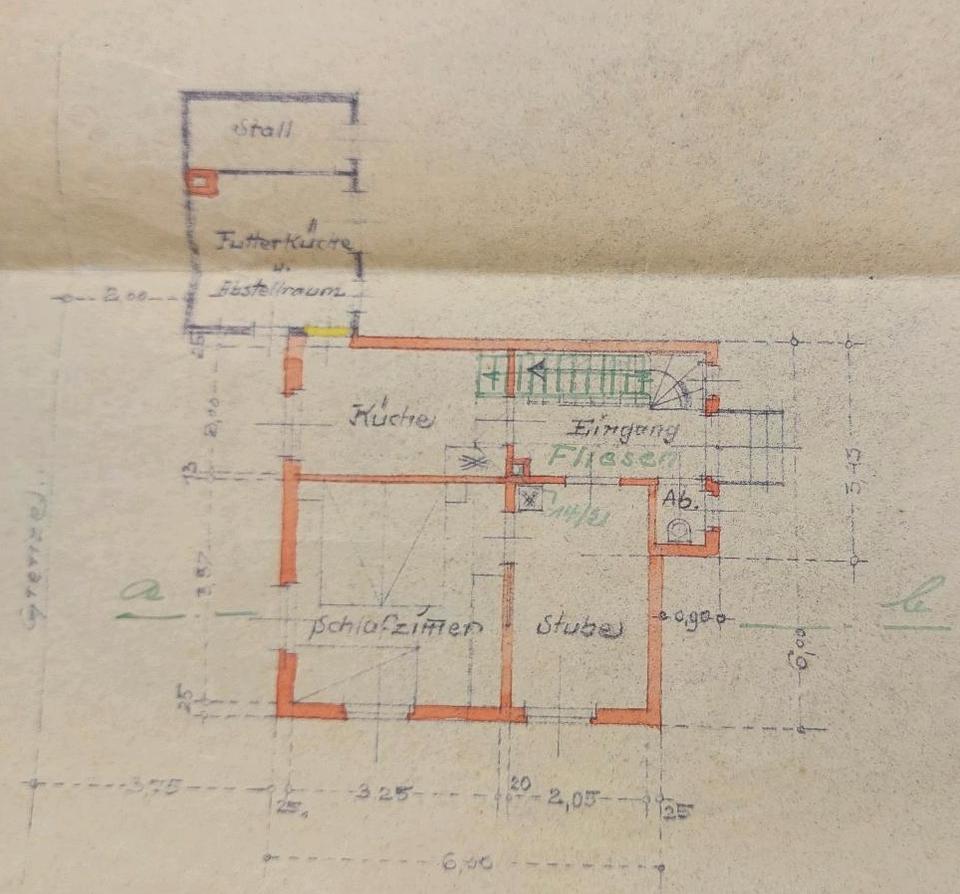 Stall
Futterküche
u.
Abstellraum
2,00
25
Küche
Eingang
Fliesen
2,00
13
Ab.
14/21
5,45
3,87
grenze
a
b
Schlafzim̅er
Stube
0,90
6,00
25
3,75
25
3.25
20
2,05
25
6,00